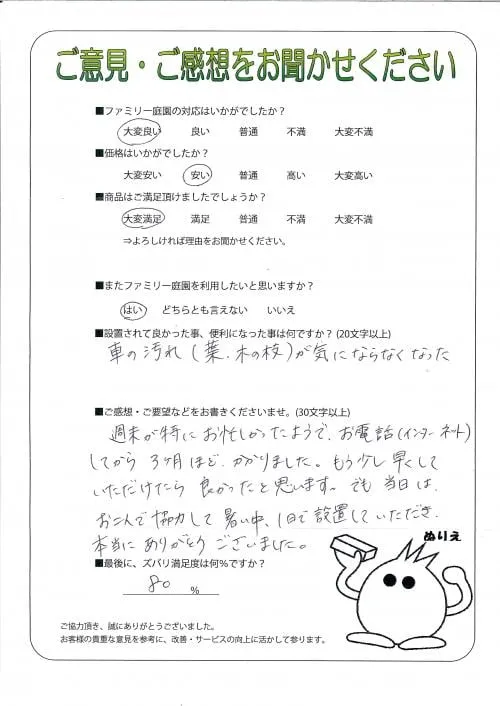 ご意見・ご感想をお聞かせください
■ファミリー庭園の対応はいかがでしたか？
大変良い 良い 普通 不満 大変不満
■価格はいかがでしたか？
大変安い 安い 普通 高い 大変高い
■商品はご満足頂けましたでしょうか？
大変満足 満足 普通 不満 大変不満
⇒よろしければ理由をお聞かせください。
■またファミリー庭園を利用したいと思いますか？
はい どちらとも言えない いいえ
■設置されて良かった事、便利になった事は何ですか？(20文字以上)
車の汚れ(葉、木の枝)が気にならなくなった
■ご感想・ご要望などをお書きくださいませ。(30文字以上)
週末が特にお忙しかったようで、お電話(インターネット)
してから3ヶ月ほどかかりました。もう少し早くして
いただけたら良かったと思います。でも当日は、
お二人で協力して暑い中、1日で設置していただき、
本当にありがとうございました。
ぬりえ
■最後に、ズバリ満足度は何％ですか？
80 %
ご協力頂き、誠にありがとうございました。
お客様の貴重な意見を参考に、改善・サービスの向上に活かして参ります。